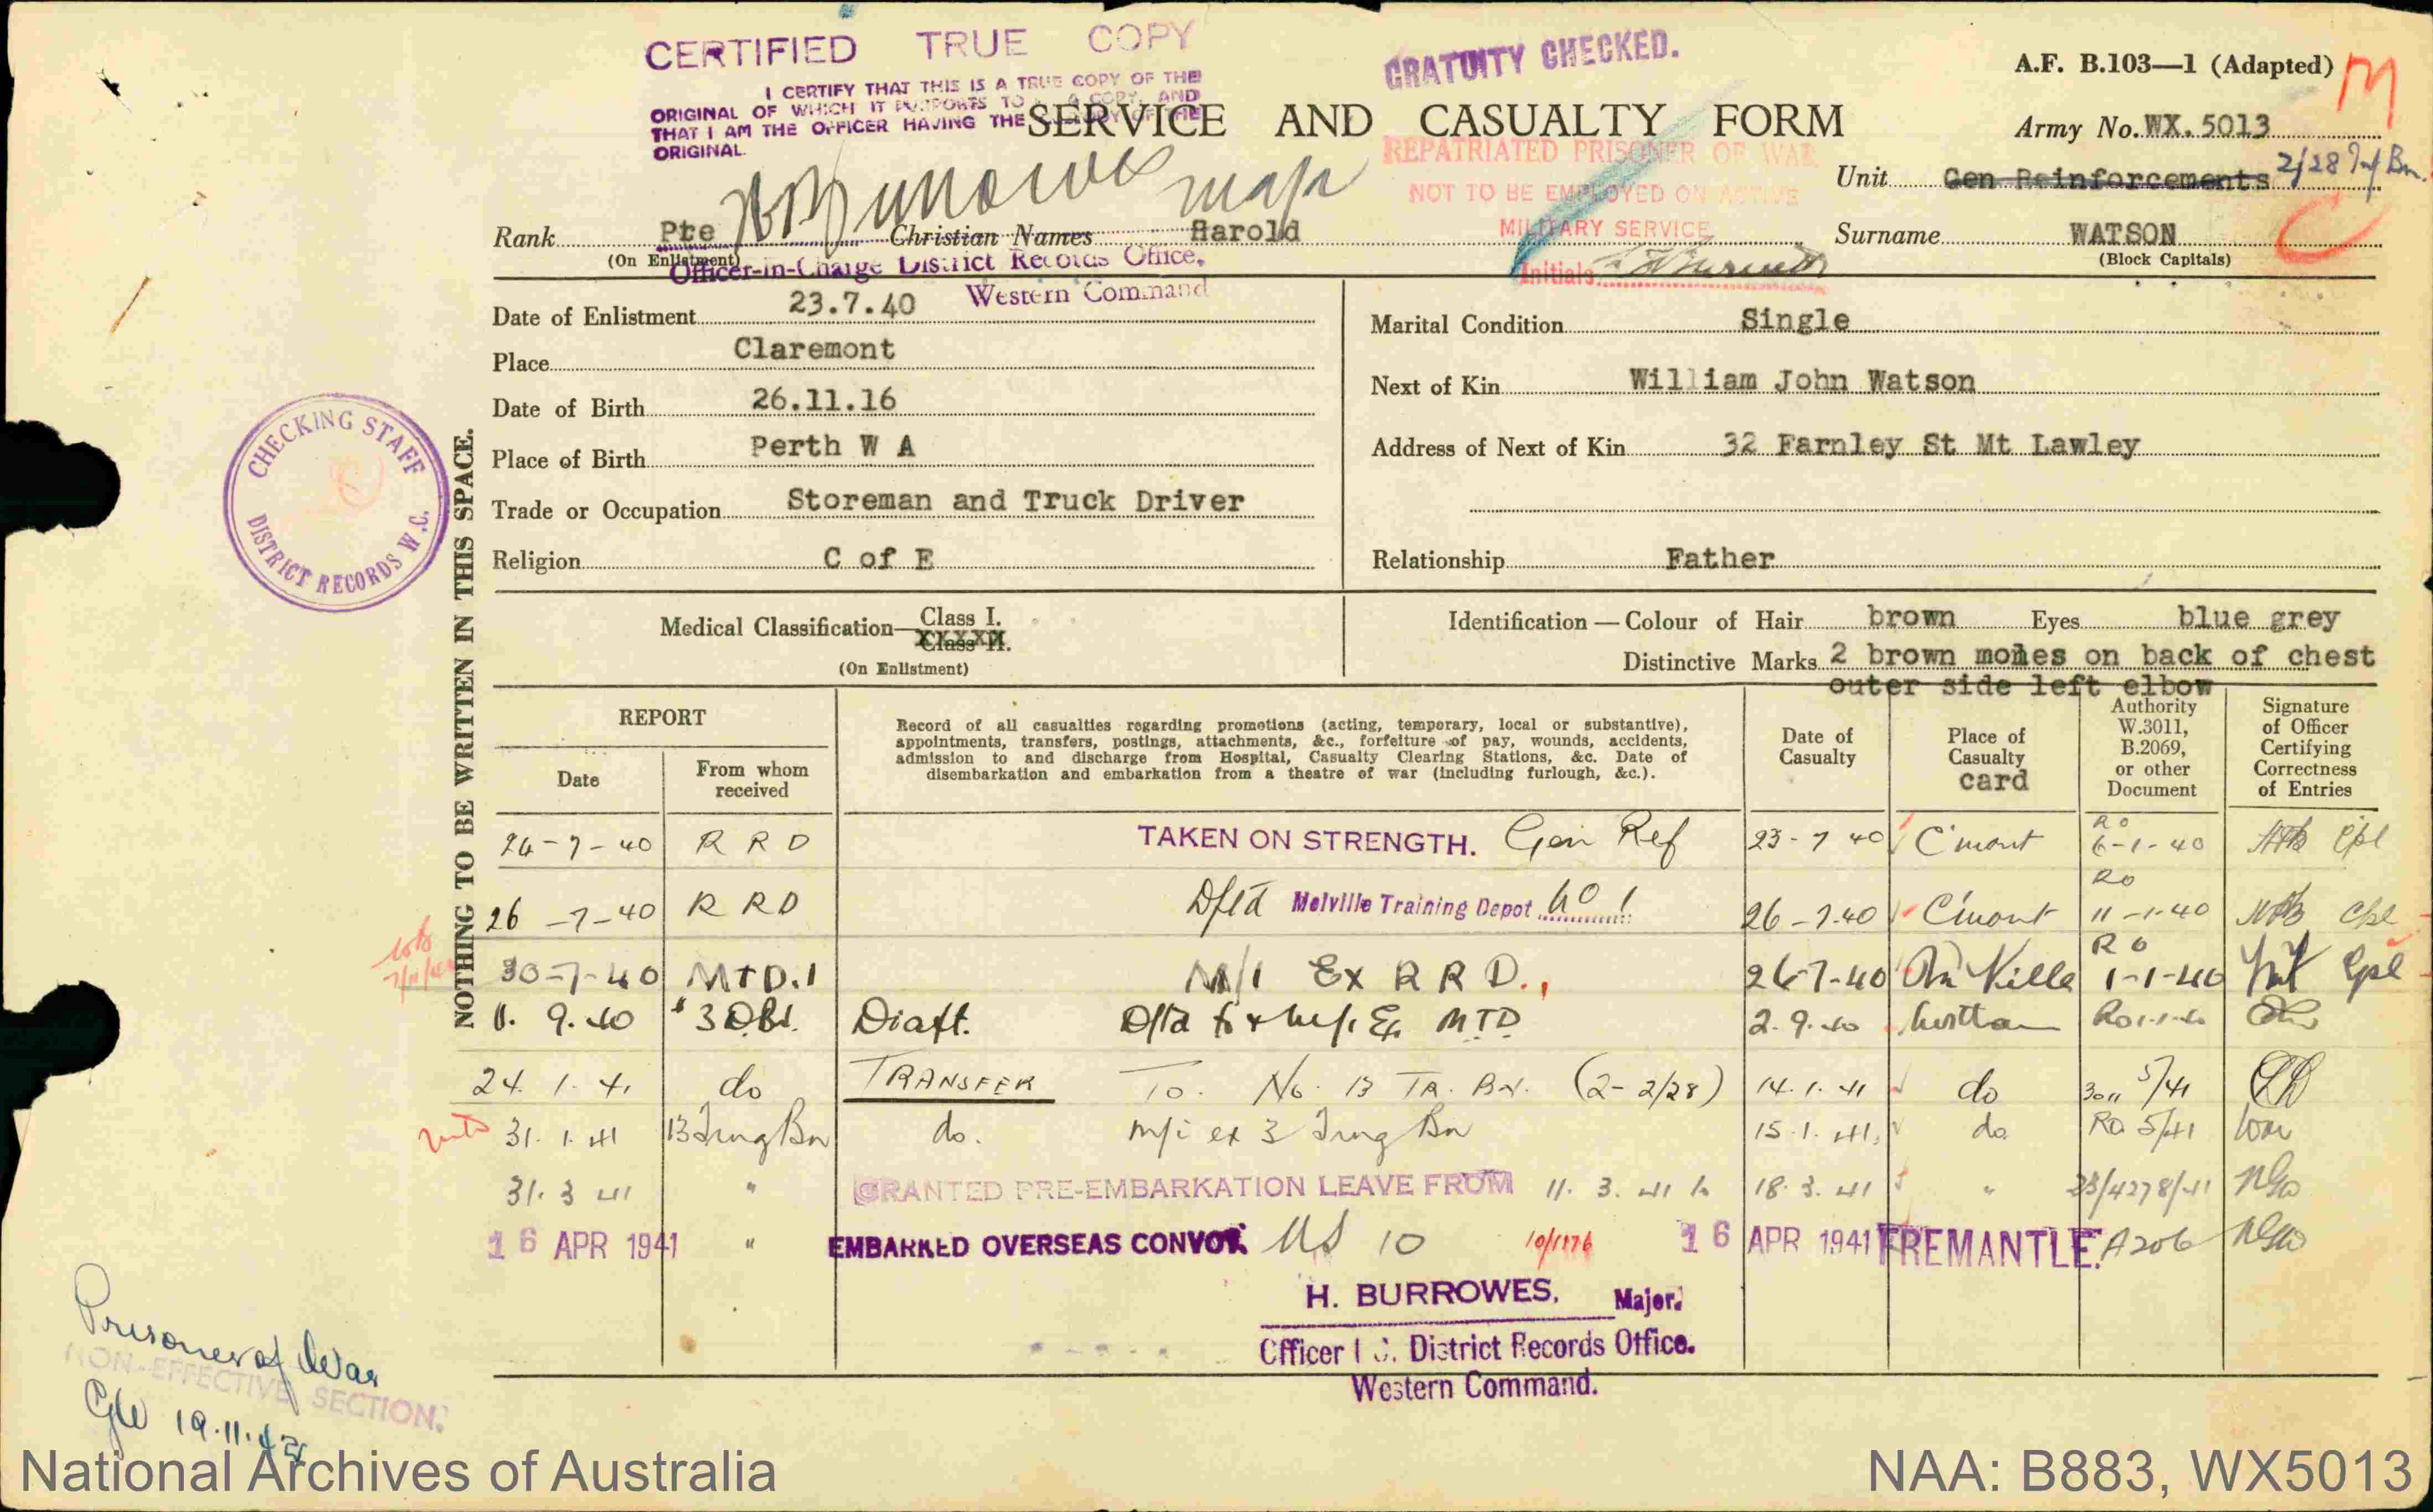 CERTIFIED TRUE COPY
I CERTIFY THAT THIS IS A TRUE COPY OF THE
ORIGINAL OF WHICH IT PURPORTS TO A COPY AND
THAT I AM THE OFFICER HAVING THE CUSTODY OF THE
ORIGINAL.
GRATUITY CHECKED.
A.F. B.103—1 (Adapted)
M
SERVICE AND CASUALTY FORM
Army No. WX. 5013
REPATRIATED PRISONER OF WAR
NOT TO BE EMPLOYED ON ACTIVE
MILITARY SERVICE
Initials
Unit Gen Reinforcements 2/28 Inf Bn.
Rank Pte Christian Names Harold Surname WATSON
(On Enlistment) (Block Capitals)
Officer-in-Charge District Records Office,
Western Command
Date of Enlistment 23.7.40
Place Claremont
Date of Birth 26.11.16
Place of Birth Perth W A
Trade or Occupation Storeman and Truck Driver
Religion C of E
Marital Condition Single
Next of Kin William John Watson
Address of Next of Kin 32 Farnley St Mt Lawley
Relationship Father
CHECKING STAFF
DISTRICT RECORDS W.C.
NOTHING TO BE WRITTEN IN THIS SPACE.
Medical Classification— Class I.
Class II.
(On Enlistment)
Identification — Colour of Hair brown Eyes blue grey
Distinctive Marks 2 brown moles on back of chest
outer side left elbow
REPORT
Date
From whom received
Record of all casualties regarding promotions (acting, temporary, local or substantive),
appointments, transfers, postings, attachments, &c., forfeiture of pay, wounds, accidents,
admission to and discharge from Hospital, Casualty Clearing Stations, &c. Date of
disembarkation and embarkation from a theatre of war (including furlough, &c.).
Date of Casualty
Place of Casualty
card
Authority W.3011, B.2069, or other Document
Signature of Officer Certifying Correctness of Entries
24-7-40 R R D TAKEN ON STRENGTH. Gen Ref 23-7 40 C'mont RO 6-1-40 Cpl
26-7-40 R R D Dftd Melville Training Depot No 1 26-7-40 C'mont RO 11-1-40 Cpl
30-7-40 MTD.1 M/I Ex R R D. 26-7-40 M'Ville RO 1-1-40 Cpl
9.40 Draft. MTD 2.9.40
24.1.41 do TRANSFER To. No. 13 TR. BN. (2-2/28) 14.1.41 do 3011 5/41
31.1.41 13 Trng Bn do. m/i ex 3 Trng Bn 15.1.41 do. RO 5/41
31.3 41 " GRANTED PRE-EMBARKATION LEAVE FROM 11.3.41 to 18.3.41 " 23/4278/41
16 APR 1941 " EMBARKED OVERSEAS CONVOY. US 10 10/1176 16 APR 1941 FREMANTLE. A206
H. BURROWES, Major.
Officer I C. District Records Office.
Western Command.
Prisoner of War
NON-EFFECTIVE SECTION.
19.11.42
National Archives of Australia
NAA: B883, WX5013